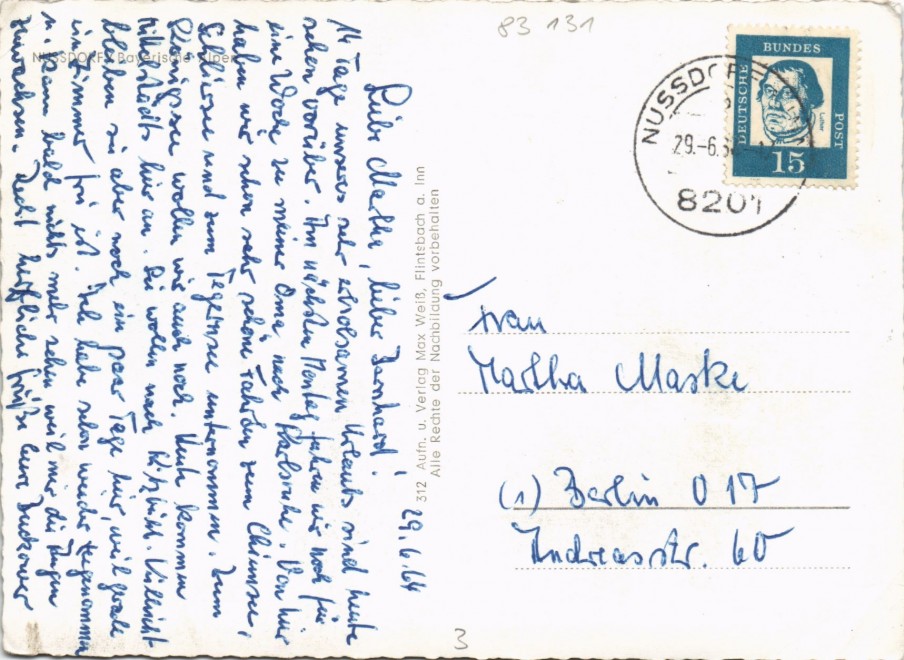 83 131
NUSSDORF / Bayerische Alpen
29.6.64
Liebe Martha, lieber Bernhard!
14 Tage unseres sehr erholsamen Urlaubs sind heute
schon vorüber. Am nächsten Montag fahren wir noch für
eine Woche zu meiner Oma nach Karlsruhe. Von hier
haben wir schon sehr schöne Fahrten zum Chiemsee,
Schliersee und zum Tegernsee unternommen. Zum
Königssee wollen wir auch noch. Heute kommen
hier an. Sie wollen nach Kitzbühl. Vielleicht
bleiben sie aber noch ein paar Tage hier, weil grade
ein Zimmer frei ist. Ich habe schon wieder zugenommen
u. kann bald nichts mehr sehen weil mir die Augen
zuwachsen. Recht herzliche Grüße Eure
312 Aufn. u. Verlag Max Weiß, Flintsbach a. Inn
Alle Rechte der Nachbildung vorbehalten
NUSSDORF
29.-6.64
8201
DEUTSCHE
BUNDES
POST
Luther
15
Frau
Martha Maske
(1) Berlin O 17
Andreasstr. 60
3